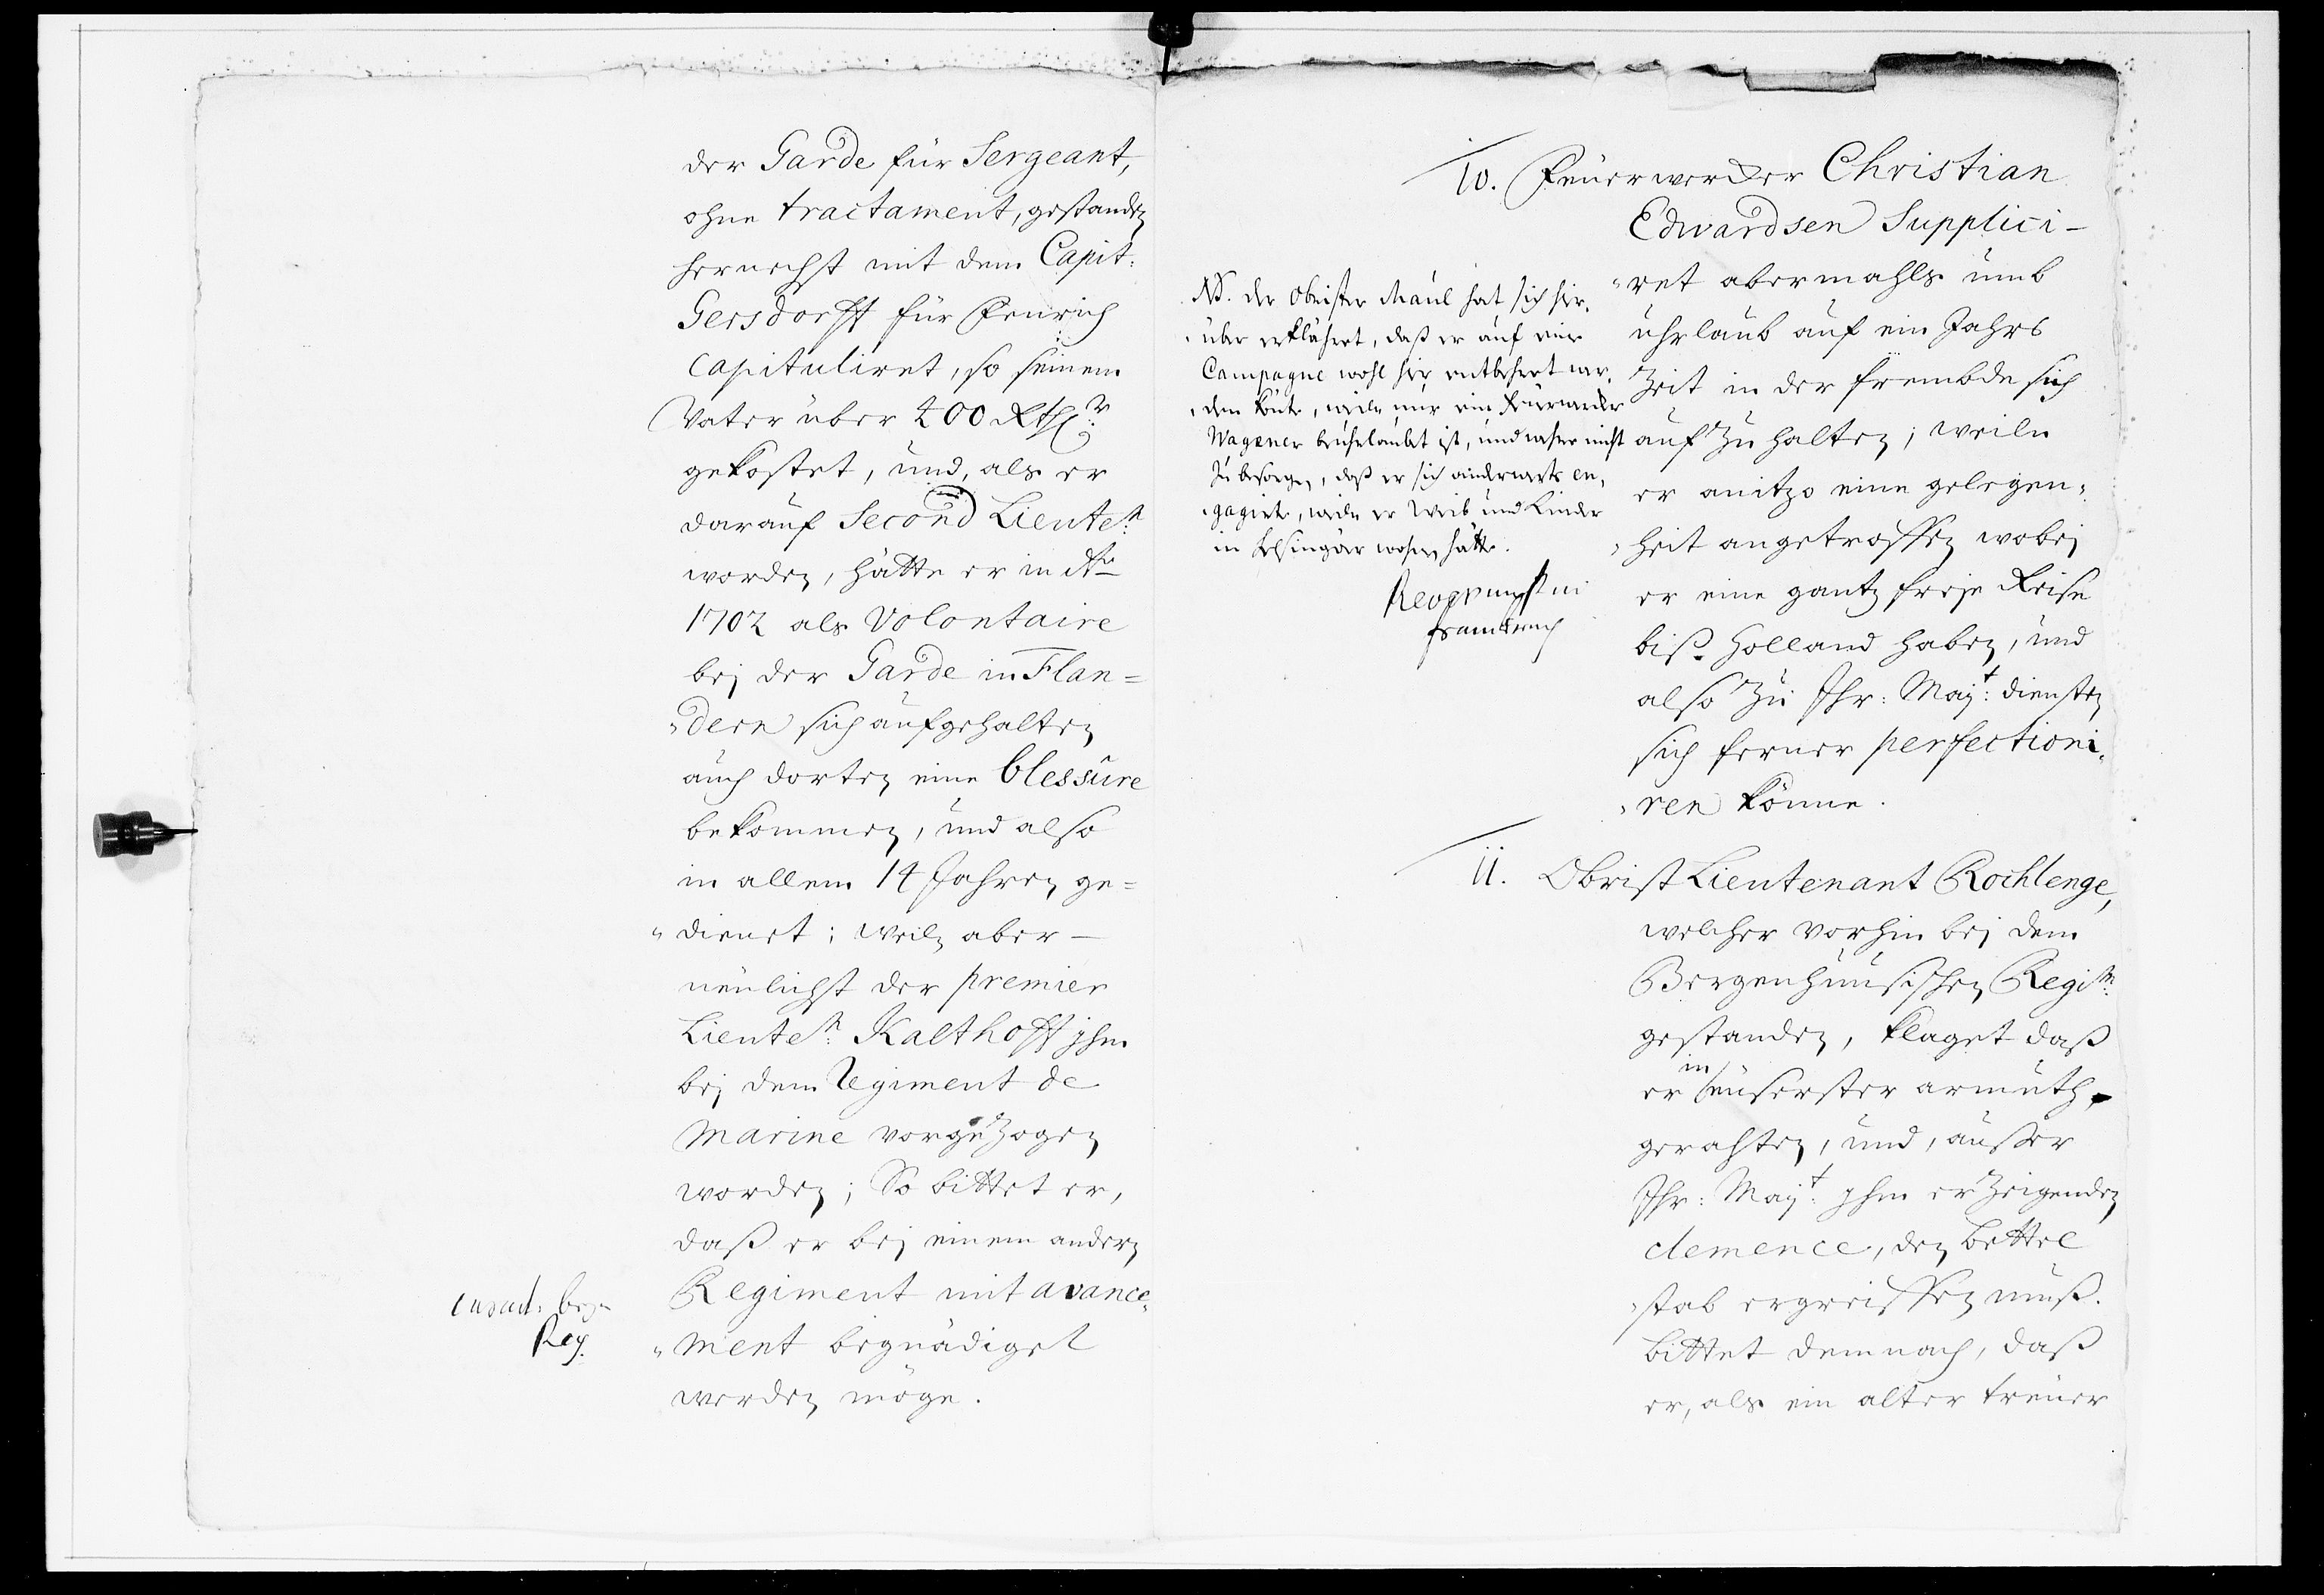 der Garde für Sergeant,
ohne tractament, gestanden
hernechst mit dem Capit:
Gersdorff für Fenrich
capituliret, so seinem
Vater über 200 Rthlr:
gekostet, und, als er
darauf Second Lieuten:
worden, hätte er in Ao
1702 als Volontaire
bej der Garde in Flan=
dern sich aufgehalten
auch dorten eine blessure
bekommen, und also
in allem 14 Jahren ge=
dienet; weiln aber
neulichst der premier
Lieuten: Kalthoff jhm
bej dem Regiment de
Marine vorgezogen
worden; So bittet er,
daß er bej einem andern
Regiment mit avance=
ment begnädiget
werden möge.
Reg.
10. Feuerwercker Christian
Edwardsen Supplici-
ret abermahls umb
uhrlaub auf ein Jahrs
Zeit in der frembde sich
auf zu halten; weiln
er anitzo eine gelegen=
heit angetroffen wobej
er eine gantz freje Reise
biß Holland haben, und
also zu Ihr: Majt: diensten
sich ferner perfectioni=
ren könne.
NB. der Obrister Maul hat sich hir=
über erklähret, daß er auf eine
Campagne wohl hir entbehret wer=
den könte, weiln nur ein Feuerwercker
Wagener beuhrlaubet ist, und wehre nicht
zu besorgen, daß er sich anderwerts en=
gagirte, weiln er Weib und Kinder
in Helsingör wohnen hätte.
11. Obrist Lieutenant Rochlenge,
welcher vorhin bej dem
Bergenhuusischen Regim:
gestanden, klaget daß
er in äuserster armuth
gerahten, und, ausser
Ihr: Majt: jhm erzeigenden
clemence, den bettel
stab ergreiffen muß.
bittet demnach, daß
er, als ein alter treuer